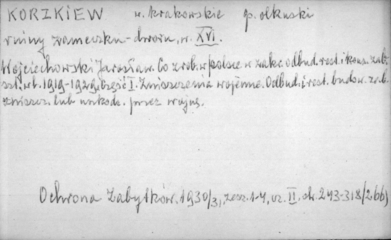 KORZKIEW w. krakowskie p. olkuski
ruiny zameczku-dworu, w. XVI.
Wojciechowski Jarosław. Co zrob. w Polsce w zakr. odbud. rest. i kons. zab.
szt. w l. 1919-1929, część I. Zniszczenia wojenne. Odbud. i rest. budow. zab.
zniszcz. lub uszkodz. przez wojnę.
Ochrona Zabytków. 1930/31, zesz. 1-4, cz. II. str. 243-318/266)